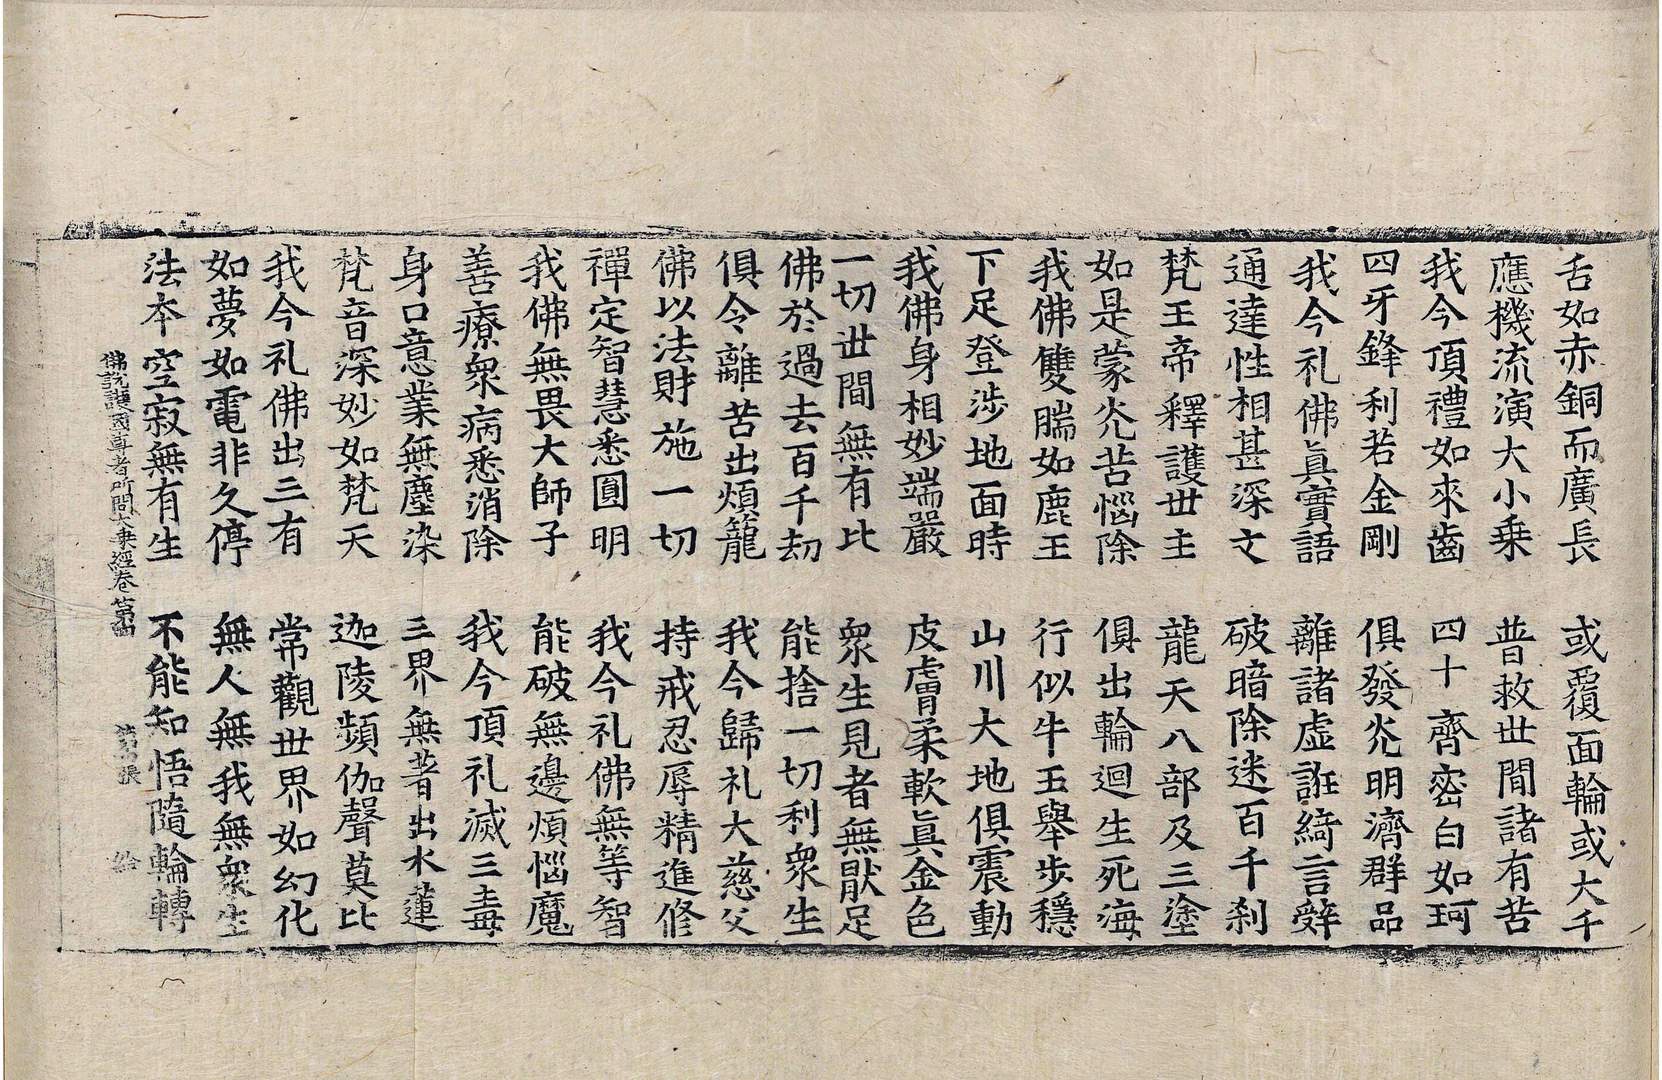 舌如赤銅而廣長　或覆面輪或大千
應機流演大小乗　普救世間諸有苦
我今頂禮如來齒　四十齊密白如珂
四牙鋒利若金剛　俱發光明濟群品
我今礼佛眞實語　離諸虛誑綺言辤
通達性相甚深文　破暗除迷百千刹
梵王帝釋護世主　龍天八部及三塗
如是蒙光苦惱除　俱出輪迴生死海
我佛雙腨如鹿王　行似牛王舉步穩
下足登涉地面時　山川大地俱震動
我佛身相妙端嚴　皮膚柔軟眞金色
一切世間無有比　衆生見者無猒足
佛於過去百千劫　能捨一切利衆生
俱令離苦出煩籠　我今歸礼大慈父
佛以法財施一切　持戒忍辱精進修
禪定智慧悉圓明　我今礼佛無等智
我佛無畏大師子　能破無邊煩惱魔
善療衆病悉消除　我今頂礼滅三毒
身口意業無塵染　三界無著出水蓮
梵音深妙如梵天　迦陵頻伽聲莫比
我今礼佛出三有　常觀世界如幻化
如夢如電非久停　無人無我無衆生
法本空寂無有生　不能知悟隨輪轉
佛說護國尊者所問大乗經卷第四　第　張